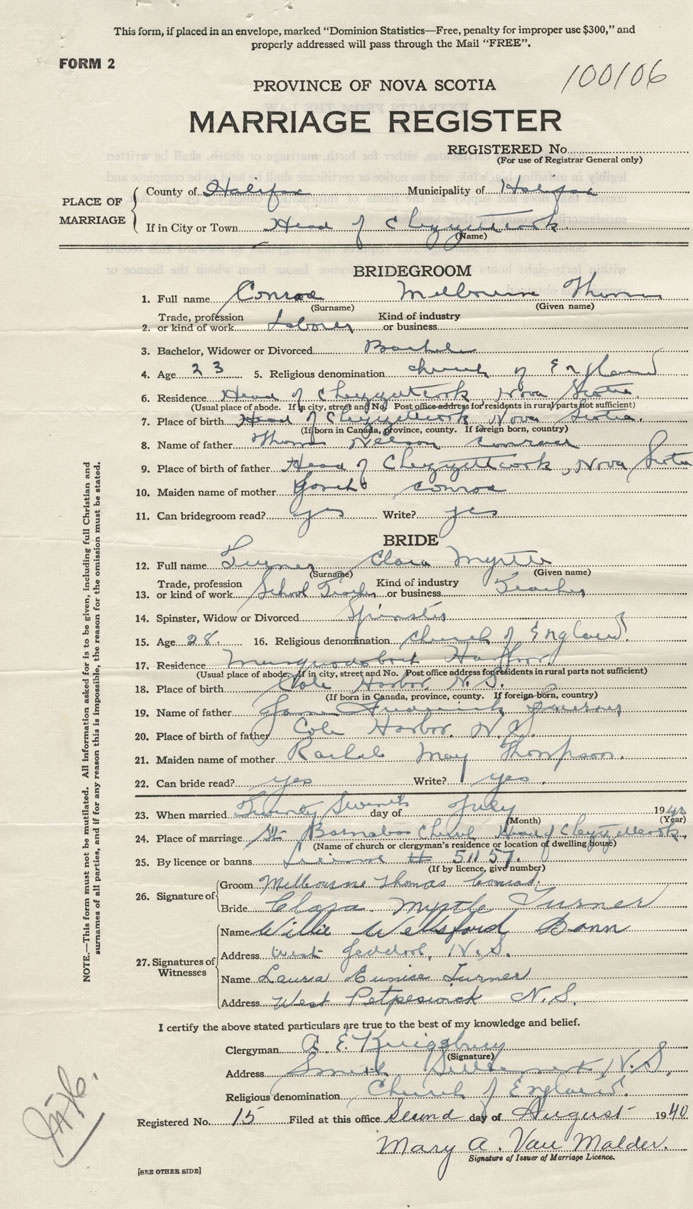 This form, if placed in an envelope, marked "Dominion Statistics—Free, penalty for improper use $300," and
properly addressed will pass through the Mail "FREE".
FORM 2
100106
PROVINCE OF NOVA SCOTIA
MARRIAGE REGISTER
REGISTERED No.
(For use of Registrar General only)
PLACE OF MARRIAGE
County of Halifax Municipality of Halifax
If in City or Town Head of Chezzetcook
(Name)
BRIDEGROOM
1. Full name Conrod Melbourne Thomas
(Surname) (Given name)
2. Trade, profession or kind of work Laborer Kind of industry or business
3. Bachelor, Widower or Divorced Bachelor
4. Age 23 5. Religious denomination Church of England
6. Residence Head of Chezzetcook Nova Scotia
(Usual place of abode. If in city, street and No. Post office address for residents in rural parts not sufficient)
7. Place of birth Head of Chezzetcook Nova Scotia
(If born in Canada, province, county. If foreign born, country)
8. Name of father Thomas Nelson Conrod
9. Place of birth of father Head of Chezzetcook, Nova Scotia
10. Maiden name of mother Conrod
11. Can bridegroom read? yes Write? yes
BRIDE
12. Full name Turner Clara Myrtle
(Surname) (Given name)
13. Trade, profession or kind of work School Teacher Kind of industry or business Teacher
14. Spinster, Widow or Divorced Spinster
15. Age 28. 16. Religious denomination Church of England.
17. Residence Musquodoboit Harbor
(Usual place of abode. If in city, street and No. Post office address for residents in rural parts not sufficient)
18. Place of birth Cole Harbor N.S.
(If born in Canada, province, county. If foreign born, country)
19. Name of father Frederick Turner
20. Place of birth of father Cole Harbor. N.S.
21. Maiden name of mother Rachel May Thompson.
22. Can bride read? yes Write? yes.
23. When married Twenty Seventh day of July 1940
(Month) (Year)
24. Place of marriage St Barnabas Church Head of Chezzetcook.
(Name of church or clergyman's residence or location of dwelling house)
25. By licence or banns License # 51157.
(If by licence, give number)
26. Signature of
Groom Melbourne Thomas Conrod.
Bride Clara Myrtle Turner
27. Signatures of Witnesses
Name Willie Wellsford Bonn
Address West Jeddore, N.S.
Name Laura Eunice Turner
Address West Petpeswick N.S.
I certify the above stated particulars are true to the best of my knowledge and belief.
Clergyman A. E.
(Signature)
Address N.S.
Religious denomination Church of England.
Registered No. 15 Filed at this office Second day of August 1940
Mary A. Van Malder.
Signature of Issuer of Marriage Licence.
[SEE OTHER SIDE]
NOTE.—This form must not be mutilated. All Information asked for is to be given, including full Christian and
surnames of all parties, and if for any reason this is impossible, the reason for the omission must be stated.